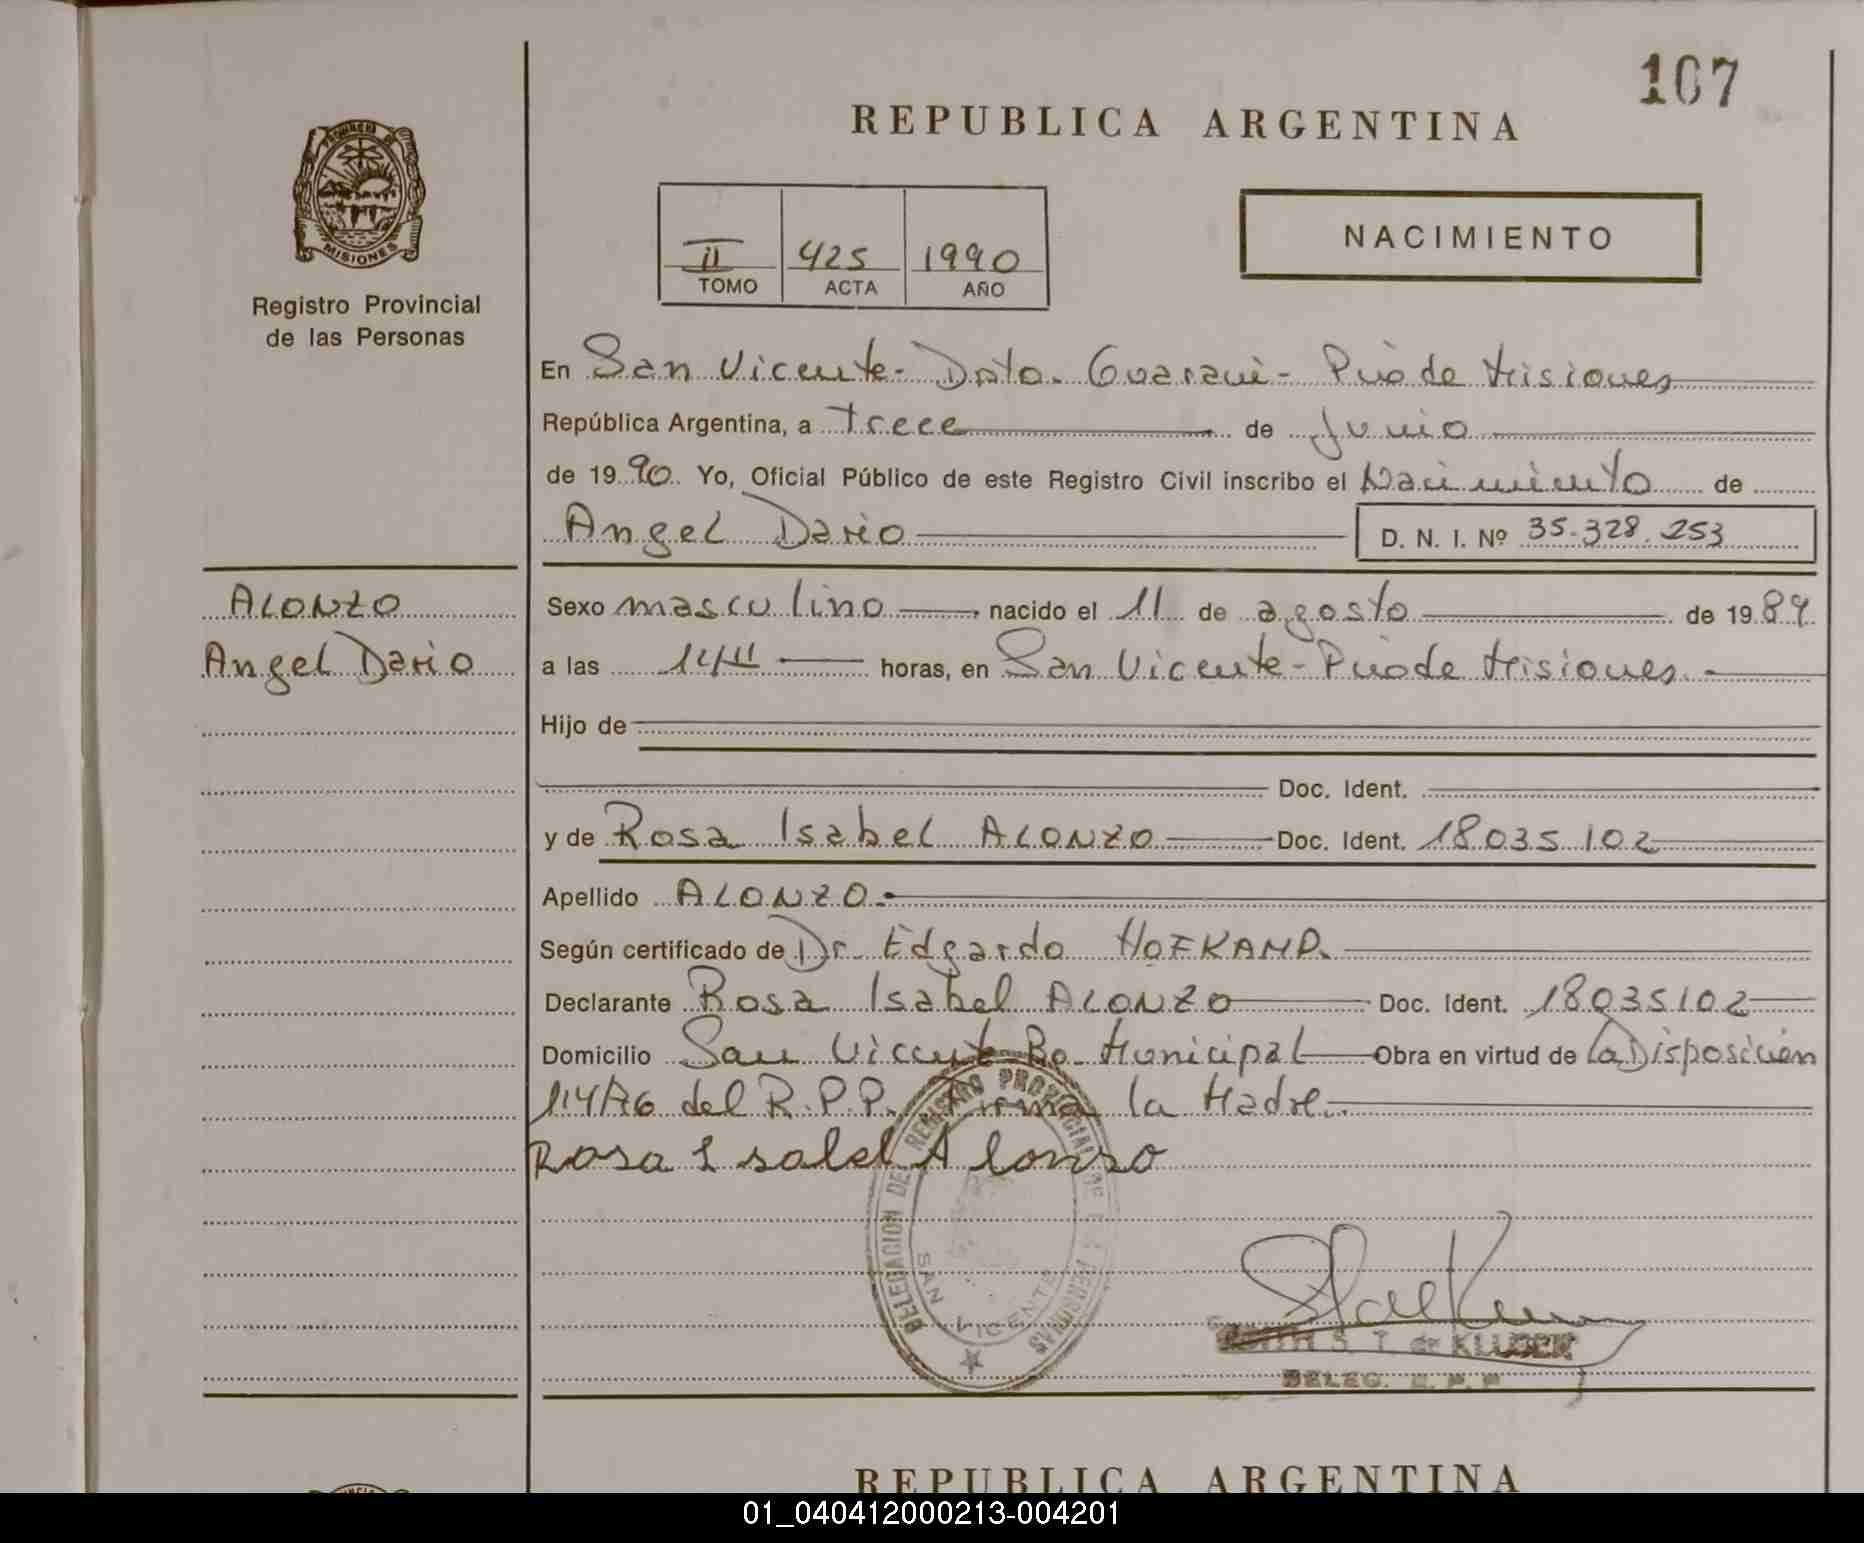 107
REPUBLICA ARGENTINA
PROVINCIA DE
MISIONES
Registro Provincial
de las Personas
II 425 1990
TOMO ACTA AÑO
NACIMIENTO
En San Vicente - Dpto. Guaraní - Pcia de Misiones
República Argentina, a Trece de Junio
de 19 90 Yo, Oficial Público de este Registro Civil inscribo el Nacimiento de
Angel Dario D. N. I. Nº 35.328.253
ALONZO
Angel Dario
Sexo masculino nacido el 11 de agosto de 19 89
a las 14 horas, en San Vicente - Pcia de Misiones.
Hijo de
Doc. Ident.
y de Rosa Isabel ALONZO Doc. Ident. 18035102
Apellido ALONZO.
Según certificado de Dr. Edgardo HOFKAMP.
Declarante Rosa Isabel ALONZO Doc. Ident. 18035102
Domicilio San Vicente Bo. Municipal Obra en virtud de la Disposición
114/76 del R.P.P. Firma la Madre.
Rosa Isabel Alonso
DELEGACION DEL REGISTRO PROVINCIAL DE LAS PERSONAS
SAN VICENTE
S. T. de KLUBEK
DELEG. R. P. P.
REPUBLICA ARGENTINA
01_040412000213-004201